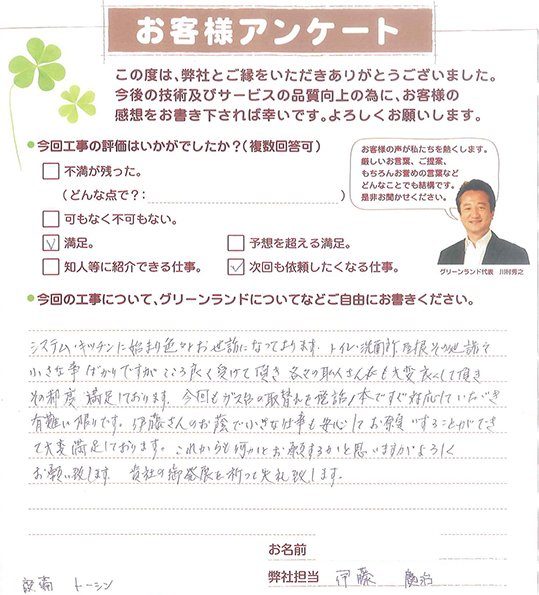 お客様アンケート
この度は、弊社とご縁をいただきありがとうございました。
今後の技術及びサービスの品質向上の為に、お客様の
感想をお書き下されば幸いです。よろしくお願いします。
今回工事の評価はいかがでしたか？(複数回答可)
不満が残った。
(どんな点で？: )
可もなく不可もない。
満足。
予想を超える満足。
知人等に紹介できる仕事。
次回も依頼したくなる仕事。
お客様の声が私たちを熱くします。
厳しいお言葉、ご提案、
もちろんお誉めの言葉など
どんなことでも結構です。
是非お聞かせください。
グリーンランド代表 川村秀之
今回の工事について、グリーンランドについてなどご自由にお書きください。
システム・キッチンに始まり色々とお世話になっております。トイレ・洗面所 屋根 その他 諸々
小さな事ばかりですが こころ良く受けて頂き 各々の職人さん私も大変良くして頂き
その都度 満足しております。今回もガス台の取替えを電話1本ですぐ対応していただき
有難い限りです。伊藤さんのお蔭で小さな仕事も安心してお願いすることができ
て大変満足しております。これからも何かとお願するかと思いますがよろしく
お願い致します。 貴社の御発展を祈って失礼致します。
お名前
弊社担当 伊藤
トーシン